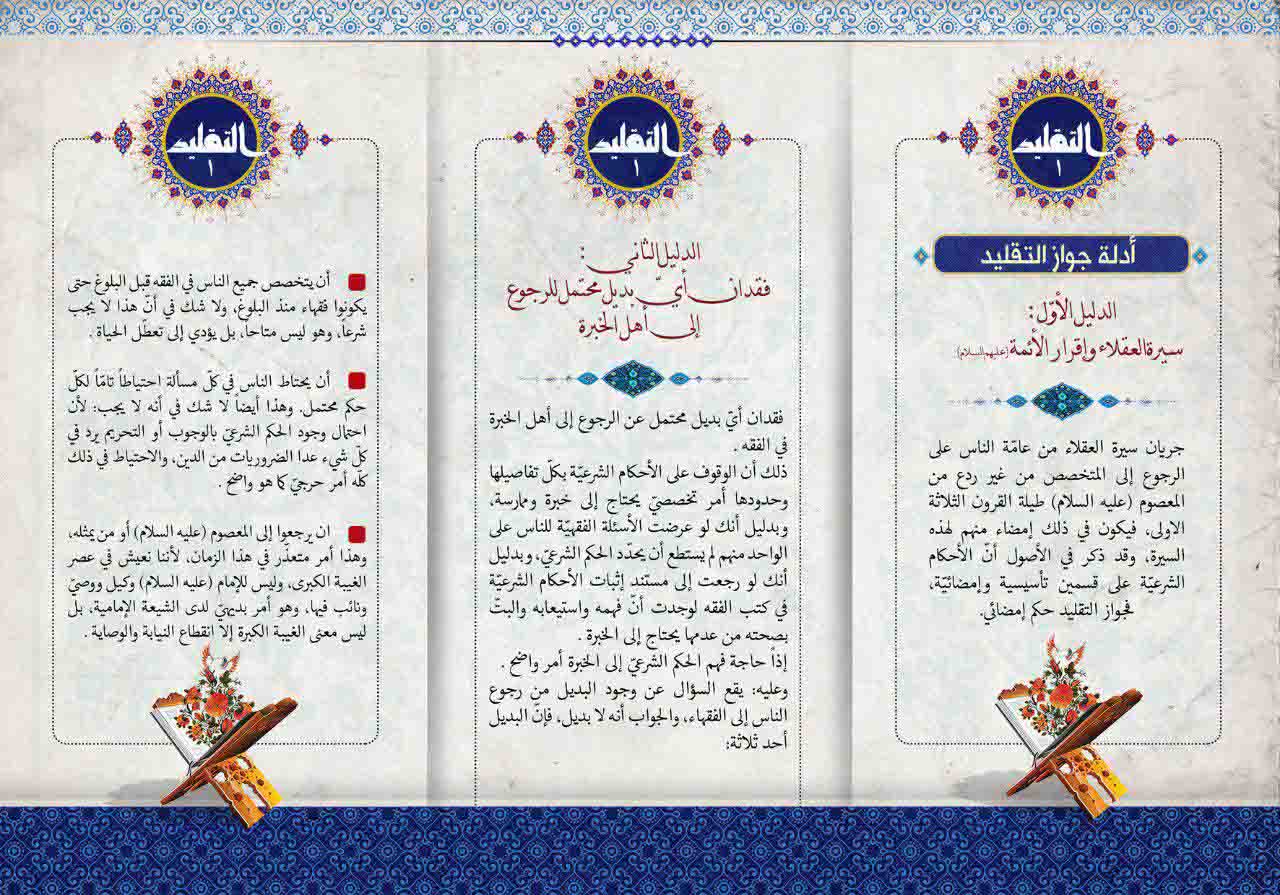 التقليد
١
أدلة جواز التقليد
الدليل الأوّل:
سيرة العقلاء وإقرار الأئمة (عليهم السلام).
جريان سيرة العقلاء من عامّة الناس على
الرجوع إلى المتخصص من غير ردع من
المعصوم (عليه السلام) طيلة القرون الثلاثة
الاولى، فيكون في ذلك إمضاء منهم لهذه
السيرة، وقد ذكر في الأصول أنّ الأحكام
الشرعيّة على قسمين تأسيسية وإمضائيّة،
فجواز التقليد حكم إمضائي.
التقليد
١
الدليل الثاني :
فقدان أيّ بديل محتمل للرجوع
إلى أهل الخبرة
فقدان أيّ بديل محتمل عن الرجوع إلى أهل الخبرة
في الفقه .
ذلك أن الوقوف على الأحكام الشرعيّة بكلّ تفاصيلها
وحدودها أمر تخصصيّ يحتاج إلى خبرة وممارسة،
وبدليل أنك لو عرضت الأسئلة الفقهيّة للناس على
الواحد منهم لم يستطع أن يحدّد الحكم الشرعيّ، وبدليل
أنك لو رجعت إلى مستند إثبات الأحكام الشرعيّة
في كتب الفقه لوجدت أنّ فهمه واستيعابه والبتّ
بصحته من عدمها يحتاج إلى الخبرة .
إذاً حاجة فهم الحكم الشرعيّ إلى الخبرة أمر واضح .
وعليه: يقع السؤال عن وجود البديل من رجوع
الناس إلى الفقهاء، والجواب أنه لا بديل، فإنّ البديل
أحد ثلاثة:
التقليد
١
أن يتخصص جميع الناس في الفقه قبل البلوغ حتى
يكونوا فقهاء منذ البلوغ، ولا شك في أنّ هذا لا يجب
شرعاً، وهو ليس متاحاً، بل يؤدي إلى تعطّل الحياة .
أن يحتاط الناس في كلّ مسألة احتياطاً تامّاً لكلّ
حكم محتمل. وهذا أيضاً لا شك في أنه لا يجب: لأن
احتمال وجود الحكم الشرعيّ بالوجوب أو التحريم يرد في
كلّ شيء عدا الضروريات من الدين، والاحتياط في ذلك
كلّه أمر حرجيّ كما هو واضح .
ان يرجعوا إلى المعصوم (عليه السلام) أو من يمثله،
وهذا أمر متعذّر في هذا الزمان، لأننا نعيش في عصر
الغيبة الكبرى، وليس للإمام (عليه السلام) وكيل ووصيّ
ونائب فيها، وهو أمر بديهيّ لدى الشيعة الإمامية، بل
ليس معنى الغيبة الكبرة إلا انقطاع النيابة والوصاية .